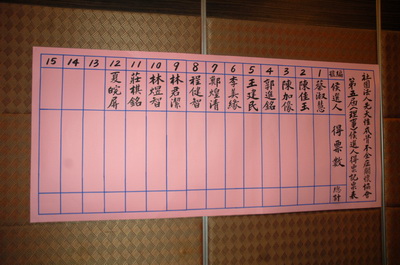 社團法人先天性成骨不全症關懷協會
第五屆(理事)候選人得票記票表
編號 候選人 得票數 總計
1 蔡淑慧
2 陳佳玉
3 陳加像
4 郭進銘
5 王建民
6 李美緣
7 鄭煌清
8 程健智
9 林君潔
10 林煜智
11 莊棋銘
12 夏皖屏
13
14
15